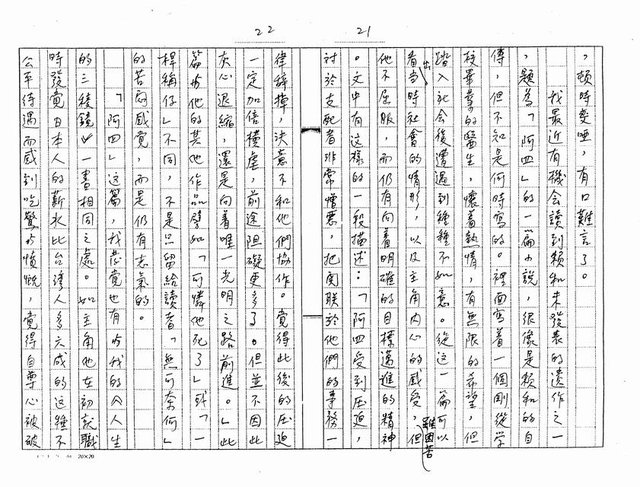 22
21
，頓時變啞，有口難言了。
我最近有機會讀到賴和未發表的遺作之一
，題為「阿四」的一篇小說，很像是賴和的自
傳，但不知是何時寫的。裡面寫着一個剛從學
校畢業的醫生，懷着熱情，有無限的希望，但
踏入社會後遭遇到種種不如意。從這一篇可以
看出當時社會的情形，以及主角內心的感受，但雖困苦
他不屈服，而仍有向着明確的目標邁進的精神
。文中有這樣的一段描述：「阿四受到壓迫，
對於支配者非常憎惡，把關聯於他們的事務一
律辭掉，決意不和他們協作。覺得此後的壓迫
一定加倍橫虐，前途阻礙更多了。但並不因此
灰心退縮，還是向着唯一光明之路前進。」此
篇與他的其他作品譬如「可憐她死了」或「一
桿稱仔」不同，不是只留給讀者「無可奈何」
的苦悶感覺，而是仍有志氣的。
「阿四」這篇，我感覺也有與我的《人生
的三稜鏡》一書相同之處。如主角他在初就職
時發覺日本人的薪水比台灣人多六成的這種不
公平待遇而感到吃驚與憤慨，覺得自尊心被破
20×20